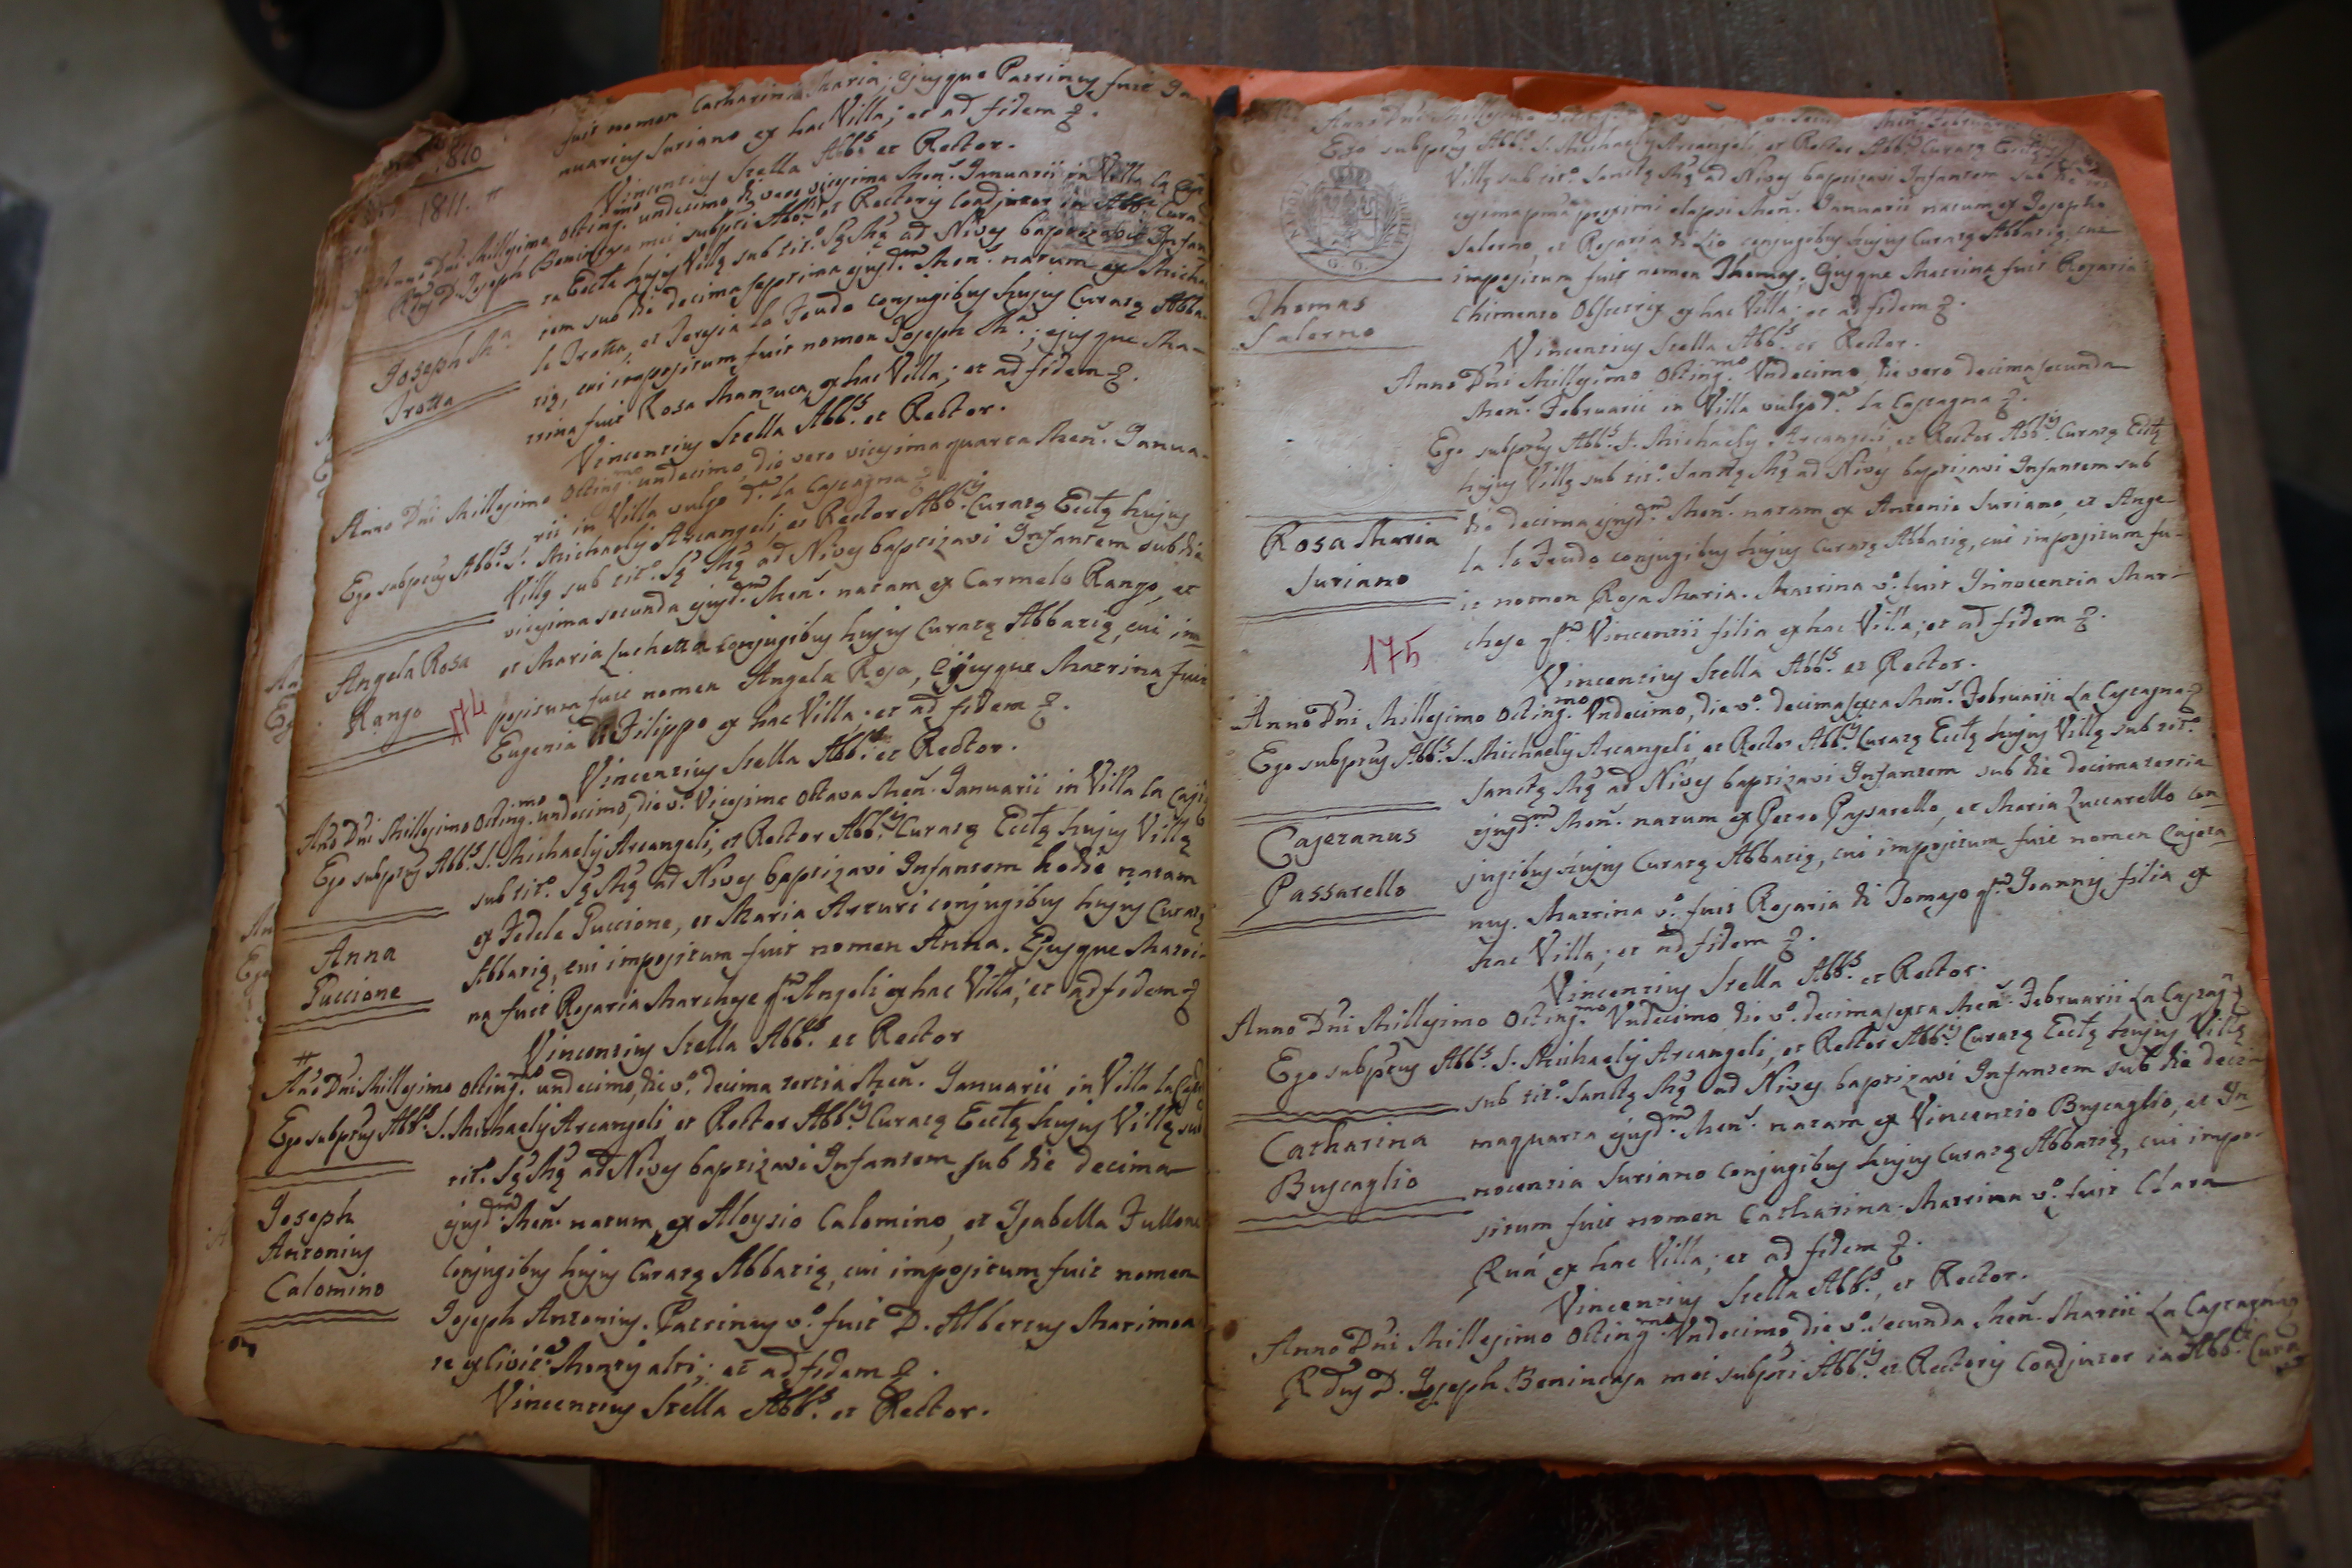 fuit nomen Catharina Maria; ejusque Patrinus fuit Ja-
nuarius Suriano ex hac Villa; et ad fidem
Vincentius Stella Abbs. et Rector.
1810
1811.
Anno Dni Millesimo Octing.mo undecimo die vero vicesima Men. Januarii in Villa la
Rdus D. Joseph Benincasa mei subpti Abb.is et Rectoris Coadjutor in Abb. Cura-
ta Eccta hujus Villę sub tit.o Sę Mę ad Nives baptizavit Infan-
tem sub die decima septima ejusd.m Men. natum ex Micha-
Joseph M.a
Trotta
le Trotta, et Teresia lo Feudo conjugibus hujus Curatę Abba-
tię, cui impositum fuit nomen Joseph M.a; ejusque Ma-
trina fuit Rosa Manzuca, ex hac Villa; et ad fidem
Vincentius Stella Abbs. et Rector.
Anno Dni Millesimo Octing.mo undecimo, die vero vicesima quarta Men. Janua-
rii in Villa vulgo d.a la Castagna
Ego subptus Abbs. S. Michaelis Arcangeli, et Rector Abb.is Curatę Ecctę hujus
Villę sub tit.o Sę Mę ad Nives baptizavi Infantem sub die
vicesima secunda ejusd.m Men. natam ex Carmelo Rango, et
Angela Rosa
Rango
174
et Maria Luchetta conjugibus hujus Curatę Abbatię, cui im-
positum fuit nomen Angela Rosa, Ejusque Matrina fuit
Eugenia di Filippo ex hac Villa; et ad fidem
Vincentius Stella Abbs. et Rector.
Ano Dni Millesimo Octing.mo undecimo, die v.o Vicesima Octava Men. Januarii in Villa la
Ego subptus Abbs. S. Michaelis Arcangeli, et Rector Abb.is Curatę Ecctę hujus Villę
sub tit.o Sę Mę ad Nives baptizavi Infantem hodie natam
Anna
Puccione
ex Fedele Puccione, et Maria Arturi conjugibus hujus Curatę
Abbatię, cui impositum fuit nomen Anna. Ejusque Matri-
na fuit Rosaria Marchese qm. Angeli ex hac Villa; et ad fidem
Vincentius Stella Abbs. et Rector
#
Ano Dni Millesimo Octing.mo undecimo, die v.o decima tertia Men. Januarii in Villa
Ego subptus Abbs. S. Michaelis Arcangeli et Rector Abb.is Curatę Ecctę hujus Villę sub
tit.o Sę Mę ad Nives baptizavi Infantem sub die decima
Joseph
Antonius
Calomino
ejusd.m Men. natum, ex Aloysio Calomino, et Isabella Fullone
Conjugibus hujus Curatę Abbatię, cui impositum fuit nomen
Joseph Antonius. Patrinus v.o fuit D. Albertus Marimon
te ex Civit.e Montis alti; et ad fidem
Vincentius Stella Abbs. et Rector.
Anno Dni Millesimo Men. Februa
Ego subptus Abbs. S. Michaelis Arcangeli et Rector Abb.is Curatę Ecctę
Villę sub tit.o Sanctę Mę ad Nives baptizavi Infantem sub die
cesima pma proximi elapsi Men. Januarii natum ex Josepho
Salerno, et Rosaria di Lio conjugibus hujus Curatę Abbatię, cui
Thomas
Salerno
impositum fuit nomen Thomas; Ejusque Matrina fuit Rosaria
Chimento Obstetrix ex hac Villa; et ad fidem
Vincentius Stella Abbs. et Rector.
Anno Dni Millesimo Octing.mo Undecimo, die vero decima secunda
Men. Februarii in Villa vulgo d.a la Castagna
Ego subptus Abbs. S. Michaelis Arcangeli, et Rector Abb.is Curatę Ecctę
hujus Villę sub tit.o Sanctę Mę ad Nives baptizavi Infantem sub
die decima ejusd.m Men. natam ex Antonio Suriano, et Ange-
Rosa Maria
Suriano
la lo Feudo conjugibus hujus Curatę Abbatię, cui impositum fu-
it nomen Rosa Maria. Matrina v.o fuit Innocentia Mar-
175
chese qm. Vincentii filia ex hac Villa; et ad fidem
Vincentius Stella Abbs. et Rector.
Anno Dni Millesimo Octing.mo Undecimo, die v.o decima sexta Men. Februarii La Castagna
Ego subptus Abbs. S. Michaelis Arcangeli, et Rector Abb.is Curatę Ecctę hujus Villę sub tit.o
Sanctę Mę ad Nives baptizavi Infantem sub die decima tertia
Cajetanus
Passarello
ejusd.m Men. natum ex Petro Passarello, et Maria Zuccarello con-
jugibus hujus Curatę Abbatię, cui impositum fuit nomen Cajeta-
nus. Matrina v.o fuit Rosaria di Tomaso qm. Joannis filia ex
hac Villa; et ad fidem
Vincentius Stella Abbs. et Rector.
Anno Dni Millesimo Octing.mo Undecimo, die v.o decima sexta Men. Februarii La Castag.a
Ego subptus Abbs. S. Michaelis Arcangeli, et Rector Abb.is Curatę Ecctę hujus Villę
sub tit.o Sanctę Mę ad Nives baptizavi Infantem sub die deci-
Catharina
Buscaglio
maquarta ejusd.m Men. natam ex Vincentio Buscaglio, et In-
nocentia Suriano conjugibus hujus Curatę Abbatię, cui impo-
situm fuit nomen Catharina. Matrina v.o fuit Clara
Ruá ex hac Villa; et ad fidem
Vincentius Stella Abbs., et Rector.
Anno Dni Millesimo Octing.mo Undecimo die v.o secunda Men. Martii La Castagna
Rdus D. Joseph Benincasa mei subpti Abb.is et Rectoris Coadjutor in Abb. Cura